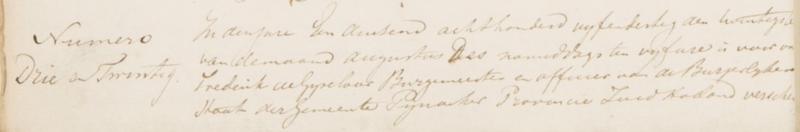 Numero
Drie en Twintig.
In den jare Een duisend achthonderd vyfendertig den twintigste
van de maand augustus Des namiddags ten vyf ure is voor on
Frederik Burgemeester en officier van de Burgerlyken
Staat der Gemeente Pijnacker Provincie Zuid Holland versche